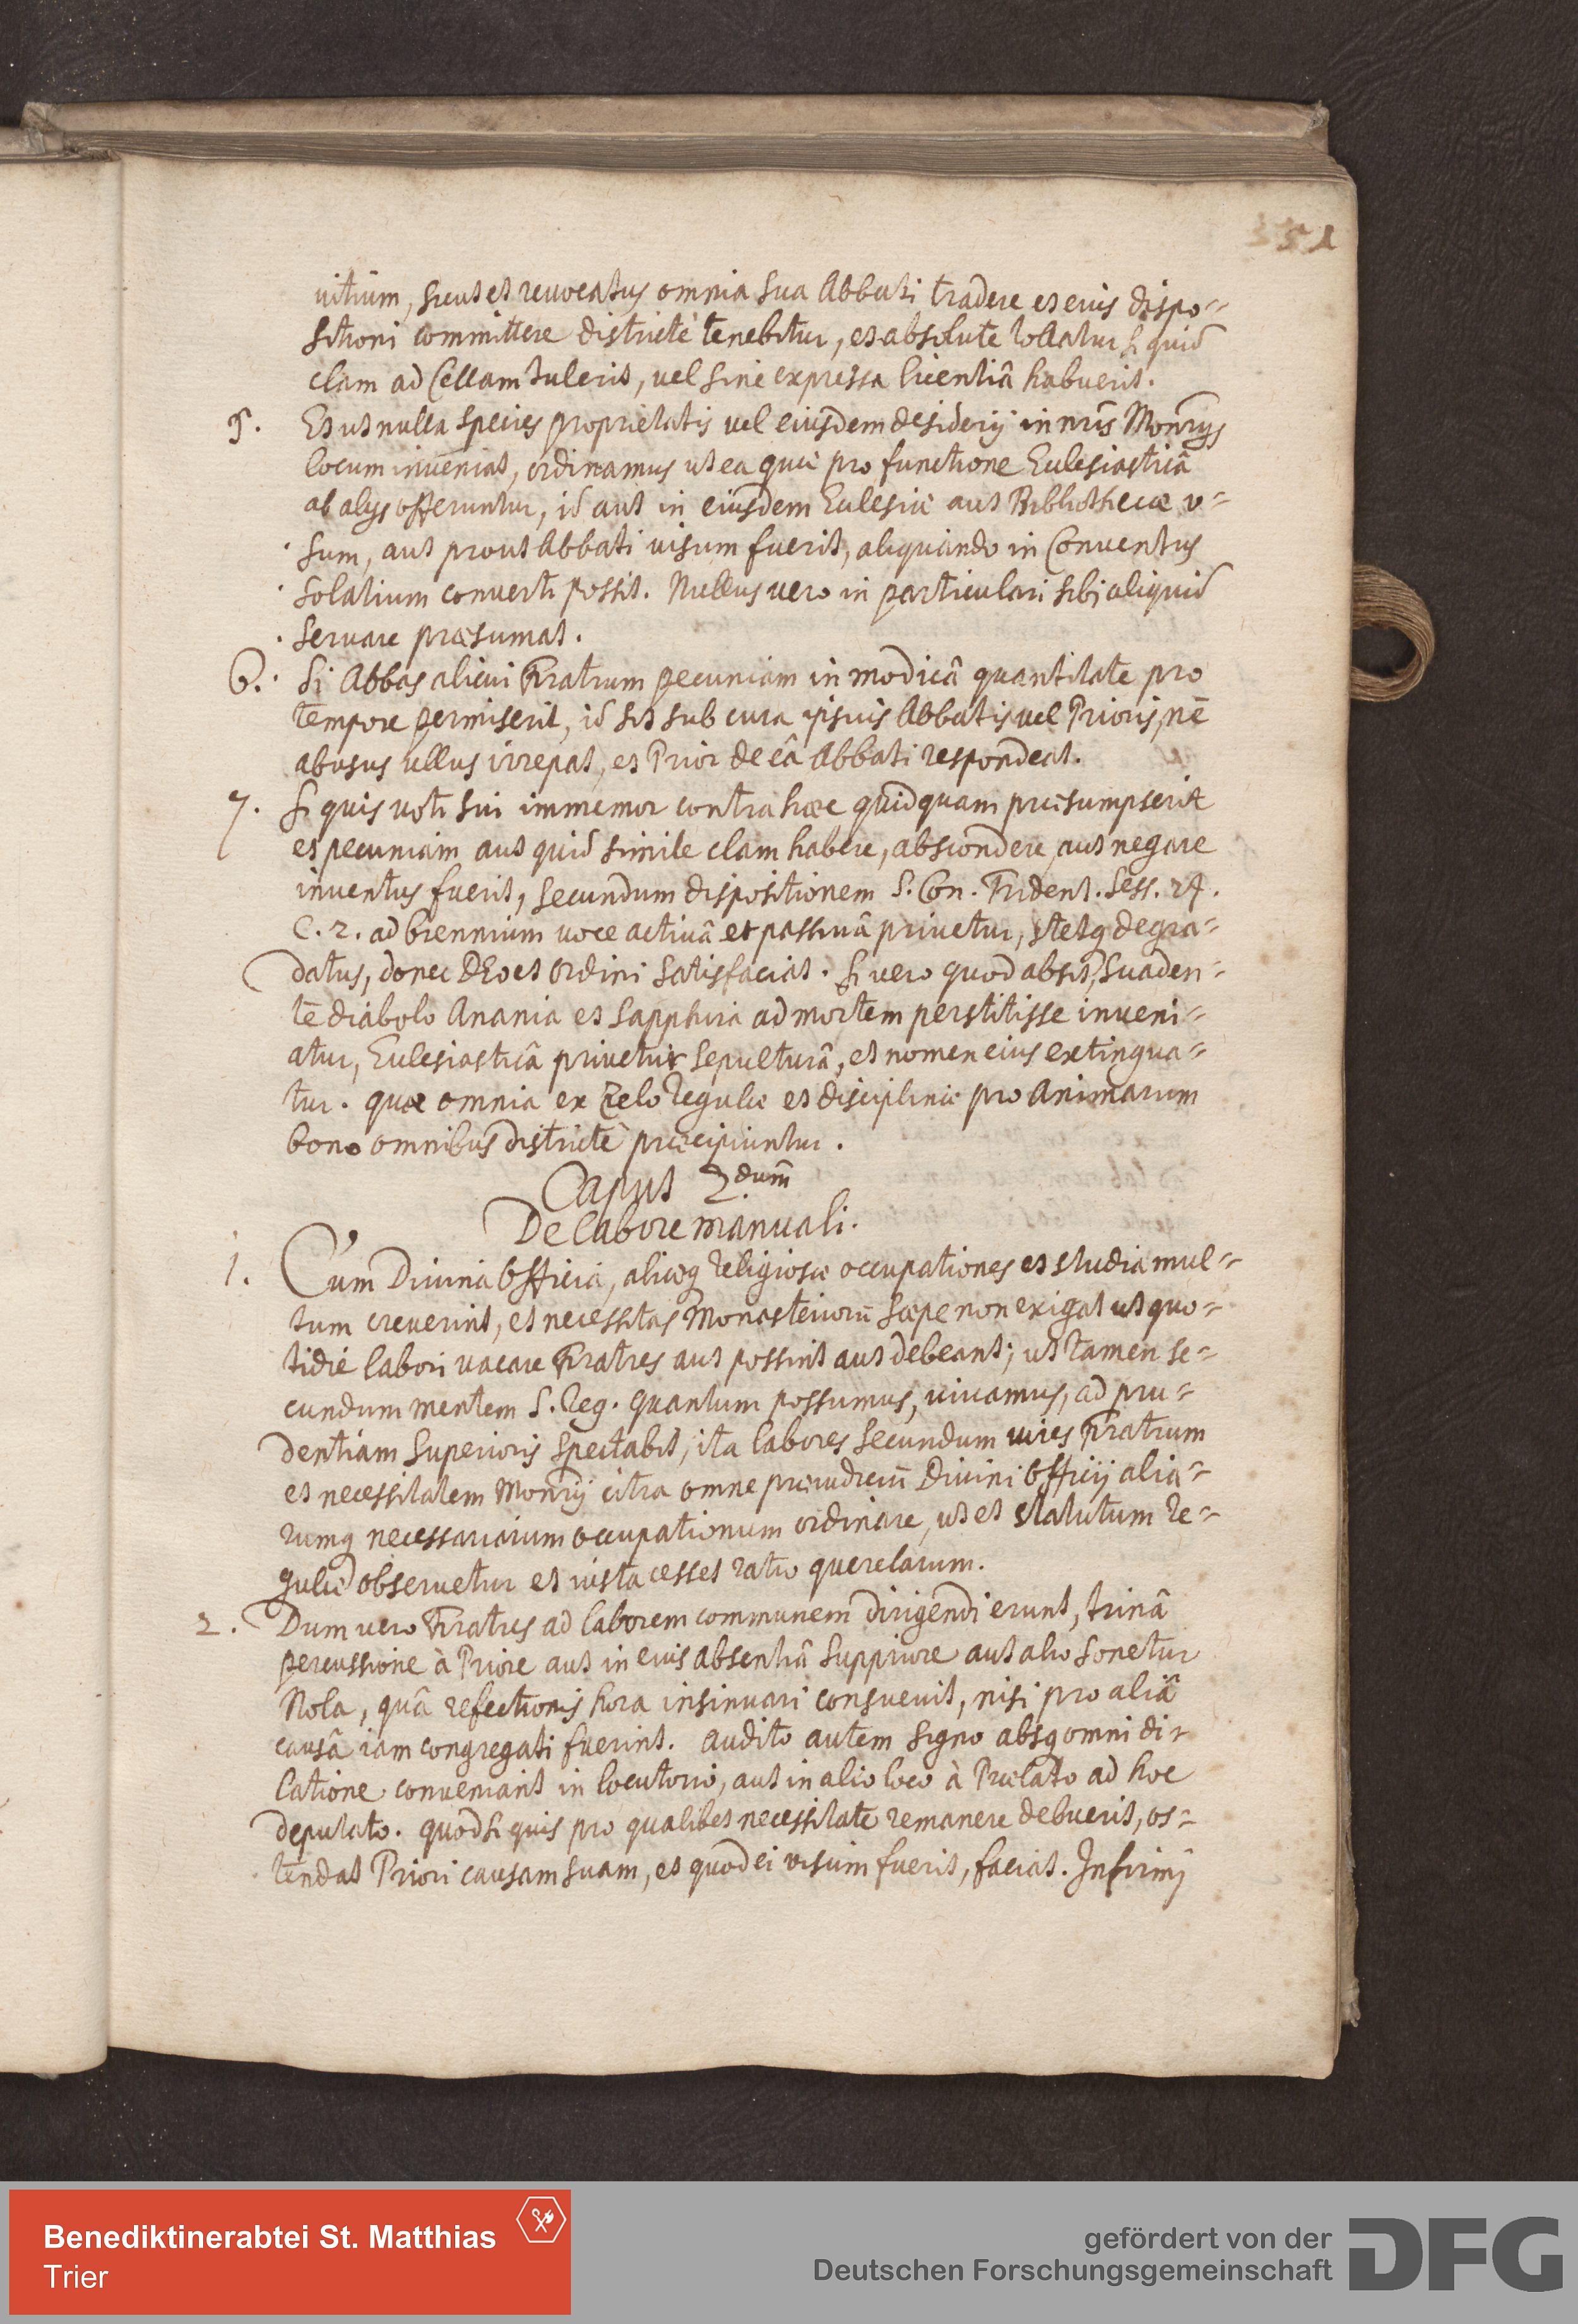 51
uitium, sicut et reuocatus omnia sua Abbati tradere et eius dispo=
sitioni committere districtè tenebitur, et absolute tollatur si quid
clam ad Cellam tulerit, vel sine expressa licentiâ habuerit.
5. Et ut nulla species proprietatis vel eiusdem desiderij in nris Monrijs
locum inveniat, ordinamus ut ea quæ pro functione Ecclesiasticâ
ab alijs offeruntur, id aut in eiusdem Ecclesiæ aut Bibliothecæ v=
sum, aut prout Abbati visum fuerit, aliquando in Conventus
solatium converti possit. Nullus vero in particulari sibi aliquid
servare præsumat.
6. Si Abbas alicui Fratrum pecuniam in modicâ quantitate pro
tempore permiserit, id sit sub cura ipsius Abbatis vel Prioris, nè
abusus ullus irrepat, et Prior de eâ Abbati respondeat.
7. Si quis voti sui immemor contra hæc quidquam præsumpserit
et pecuniam aut quid simile clam habere, abscondere, aut negare
inventus fuerit, secundum dispositionem S. Con. Trident. Sess. 24.
C. 2. ad biennium voce activâ et passivâ privetur, stetq degra=
datus, donec DEo et Ordini satisfaciat. Si vero quod absit, suaden=
te diabolo Anania et Sapphira ad mortem perstitisse inveni=
atur, Ecclesiasticâ privetur sepulturâ, et nomen eius extingua=
tur. quæ omnia ex Zelo Regulæ et disciplinæ pro Animarum
bono omnibus districtè præcipiuntur.
Caput 2.dum
De labore manuali.
1. Cum Divina Officia, aliæq Religiosæ occupationes et studia mul=
tum creverint, et necessitas Monasteriorū sæpe non exigat ut quo=
tidie labori vacare Fratres aut possint aut debeant; ut tamen se=
cundum mentem S. Reg. quantum possumus, vivamus, ad pru=
dentiam Superioris spectabit, ita labores secundum vires Fratrum
et necessitatem Monrij citra omne præiudiciū Divini Officij alia=
rumq necessariarum occupationum ordinare, ut et statutum Re=
gulæ observetur et iusta cesset ratio querelarum.
2. Dum vero Fratres ad laborem communem dirigendi erunt, trinâ
percussione à Priore aut in eius absentiâ Suppriore aut alio sonetur
Nola, quâ refectionis hora insinuari consuevit, nisi pro aliâ
causâ iam congregati fuerint. Audito autem signo absq omni di=
latione conveniant in locutorio, aut in alio loco à Prælato ad hoc
deputato. quod si quis pro qualibet necessitate remanere debuerit, os=
tendat Priori causam suam, et quod ei visum fuerit, faciat. Infirmi
Benediktinerabtei St. Matthias
Trier
gefördert von der
Deutschen Forschungsgemeinschaft
DFG